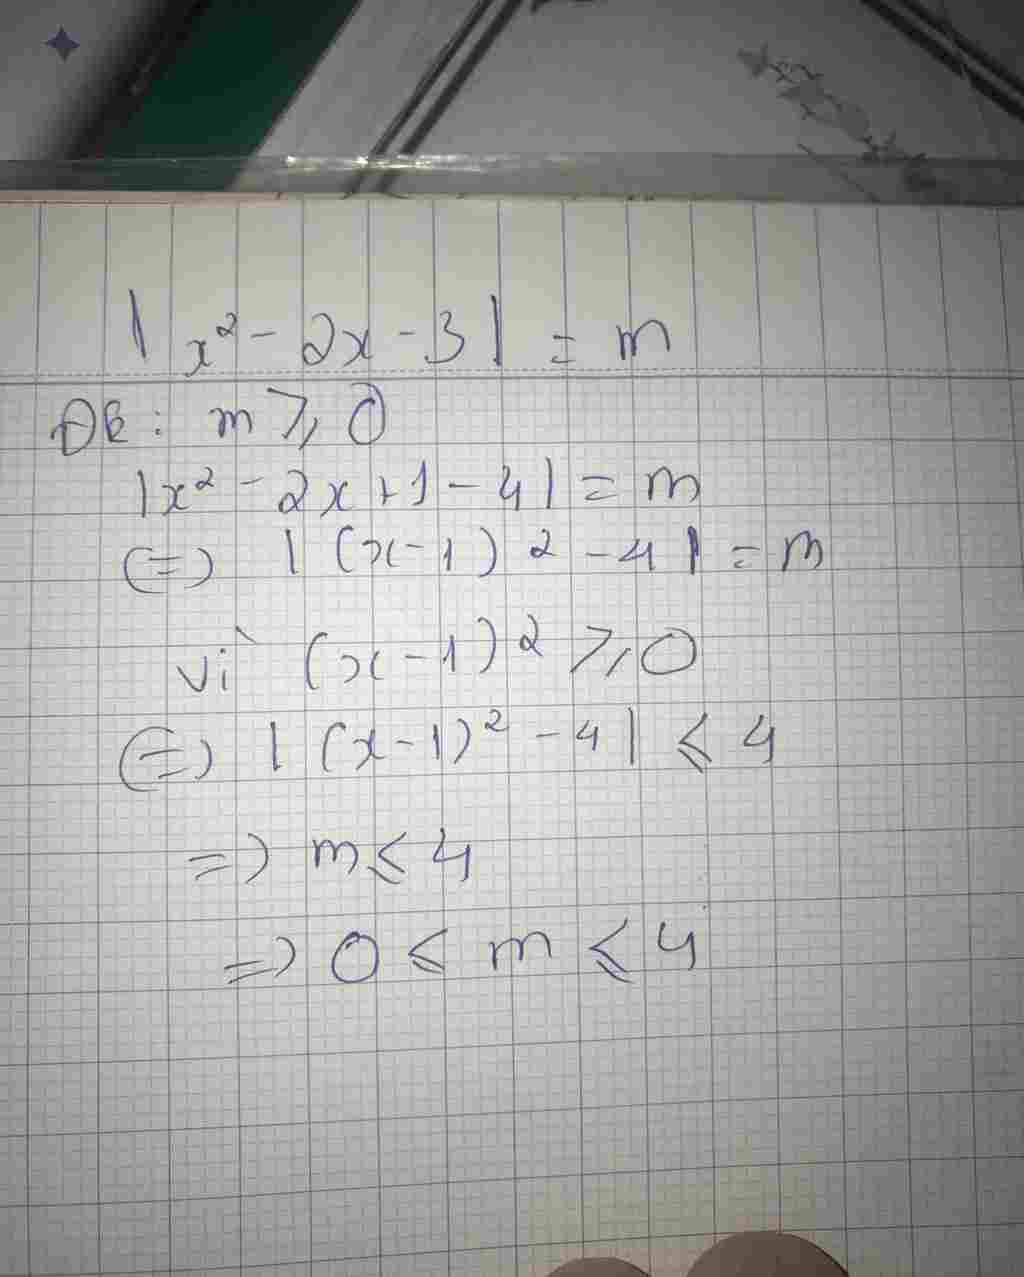 |x² - 2x - 3| = m
Đk: m ⩾ 0
|x² - 2x + 1 - 4| = m
(=) |(x-1)² - 4| = m
vì (x-1)² ⩾ 0
(=) |(x-1)² - 4| ⩽ 4
=) m ⩽ 4
=) 0 ⩽ m ⩽ 4